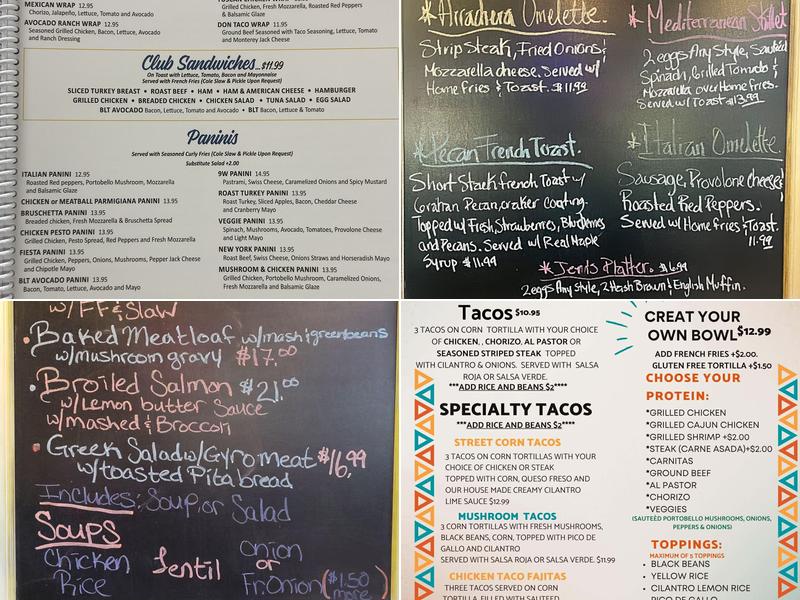 MEXICAN WRAP 12.95
Chorizo, Jalapeño, Lettuce, Tomato and Avocado
AVOCADO RANCH WRAP 12.95
Seasoned Grilled Chicken, Bacon, Lettuce, Avocado
and Ranch Dressing
Grilled Chicken, Fresh Mozzarella, Roasted Red Peppers
& Balsamic Glaze
DON TACO WRAP 11.95
Ground Beef Seasoned with Taco Seasoning, Lettuce, Tomato
and Monterey Jack Cheese
Club Sandwiches...$11.99
On Toast with Lettuce, Tomato, Bacon and Mayonnaise
Served with French Fries (Cole Slaw & Pickle Upon Request)
SLICED TURKEY BREAST • ROAST BEEF • HAM • HAM & AMERICAN CHEESE • HAMBURGER
GRILLED CHICKEN • BREADED CHICKEN • CHICKEN SALAD • TUNA SALAD • EGG SALAD
BLT AVOCADO Bacon, Lettuce, Tomato and Avocado • BLT Bacon, Lettuce & Tomato
Paninis
Served with Seasoned Curly Fries (Cole Slaw & Pickle Upon Request)
Substitute Salad +2.00
ITALIAN PANINI 12.95
Roasted Red peppers, Portobello Mushroom, Mozzarella
and Balsamic Glaze
CHICKEN or MEATBALL PARMIGIANA PANINI 13.95
BRUSCHETTA PANINI 13.95
Breaded chicken, Fresh Mozzarella & Bruschetta Spread
CHICKEN PESTO PANINI 13.95
Grilled Chicken, Pesto Spread, Red Peppers and Fresh Mozzarella
FIESTA PANINI 13.95
Grilled Chicken, Peppers, Onions, Mushrooms, Pepper Jack Cheese
and Chipotle Mayo
BLT AVOCADO PANINI 13.95
Bacon, Tomato, Lettuce, Avocado and Mayo
9W PANINI 14.95
Pastrami, Swiss Cheese, Caramelized Onions and Spicy Mustard
ROAST TURKEY PANINI 13.95
Roast Turkey, Sliced Apples, Bacon, Cheddar Cheese
and Cranberry Mayo
VEGGIE PANINI 13.95
Spinach, Mushrooms, Avocado, Tomatoes, Provolone Cheese
and Light Mayo
NEW YORK PANINI 13.95
Roast Beef, Swiss Cheese, Onions Straws and Horseradish Mayo
MUSHROOM & CHICKEN PANINI 13.95
Grilled Chicken, Portobello Mushroom, Caramelized Onions,
Fresh Mozzarella and Balsamic Glaze
*Arrachera Omelette.
Strip Steak, Fried Onions &
Mozzarella cheese. Served w/
Home Fries & Toast. $11.99
*Mediterranean Skillet
2 eggs Any Style, Sautéed
Spinach, Grilled Tomato &
Mozzarella over Home fries.
Served w/ Toast $13.99
*Pecan French Toast.
Short Stack french Toast w/
Graham Pecan craker coating.
Topped w/ Fresh Strawberries, Blueberries
and Pecans. Served w/ Real Maple
Syrup $11.99
*Italian Omelette.
Sausage, Provolone cheese &
Roasted Red Peppers.
Served w/ Home fries & Toast.
11.99
*Jen's Platter. $6.99
2 eggs Any Style, 2 Hash Brown & English Muffin.
w/ FF & Slaw
• Baked Meatloaf w/mash & greenbeans
w/mushroom gravy $17.00
• Broiled Salmon $21.00
w/Lemon butter Sauce
w/mashed & Broccoli
• Greek Salad w/Gyro meat $16.99
w/toasted Pita bread
Includes: Soup, or Salad
Soups
Chicken Rice
Lentil
Onion
or
Fr. Onion ($1.50 more)
Tacos $10.95
3 TACOS ON CORN TORTILLA WITH YOUR CHOICE
OF CHICKEN, , CHORIZO, AL PASTOR OR
SEASONED STRIPED STEAK TOPPED
WITH CILANTRO & ONIONS. SERVED WITH SALSA
ROJA OR SALSA VERDE.
***ADD RICE AND BEANS $2****
SPECIALTY TACOS
***ADD RICE AND BEANS $2****
STREET CORN TACOS
3 TACOS ON CORN TORTILLAS WITH YOUR
CHOICE OF CHICKEN OR STEAK
TOPPED WITH CORN, QUESO FRESO AND
OUR HOUSE MADE CREAMY CILANTRO
LIME SAUCE $12.99
MUSHROOM TACOS
3 CORN TORTILLAS WITH FRESH MUSHROOMS,
BLACK BEANS, CORN, TOPPED WITH PICO DE
GALLO AND CILANTRO
SERVED WITH SALSA ROJA OR SALSA VERDE. $11.99
CHICKEN TACO FAJITAS
THREE TACOS SERVED ON CORN
TORTILLA, FILLED WITH SAUTEED
CREAT YOUR
OWN BOWL $12.99
ADD FRENCH FRIES +$2.00.
GLUTEN FREE TORTILLA +$1.50
CHOOSE YOUR
PROTEIN:
*GRILLED CHICKEN
*GRILLED CAJUN CHICKEN
*GRILLED SHRIMP +$2.00
*STEAK (CARNE ASADA)+$2.00
*CARNITAS
*GROUND BEEF
*AL PASTOR
*CHORIZO
*VEGGIES
(SAUTEÉD PORTOBELLO MUSHROOMS, ONIONS,
PEPPERS & ONIONS)
TOPPINGS:
MAXIMUM OF 5 TOPPINGS
• BLACK BEANS
• YELLOW RICE
• CILANTRO LEMON RICE
• PICO DE GALLO